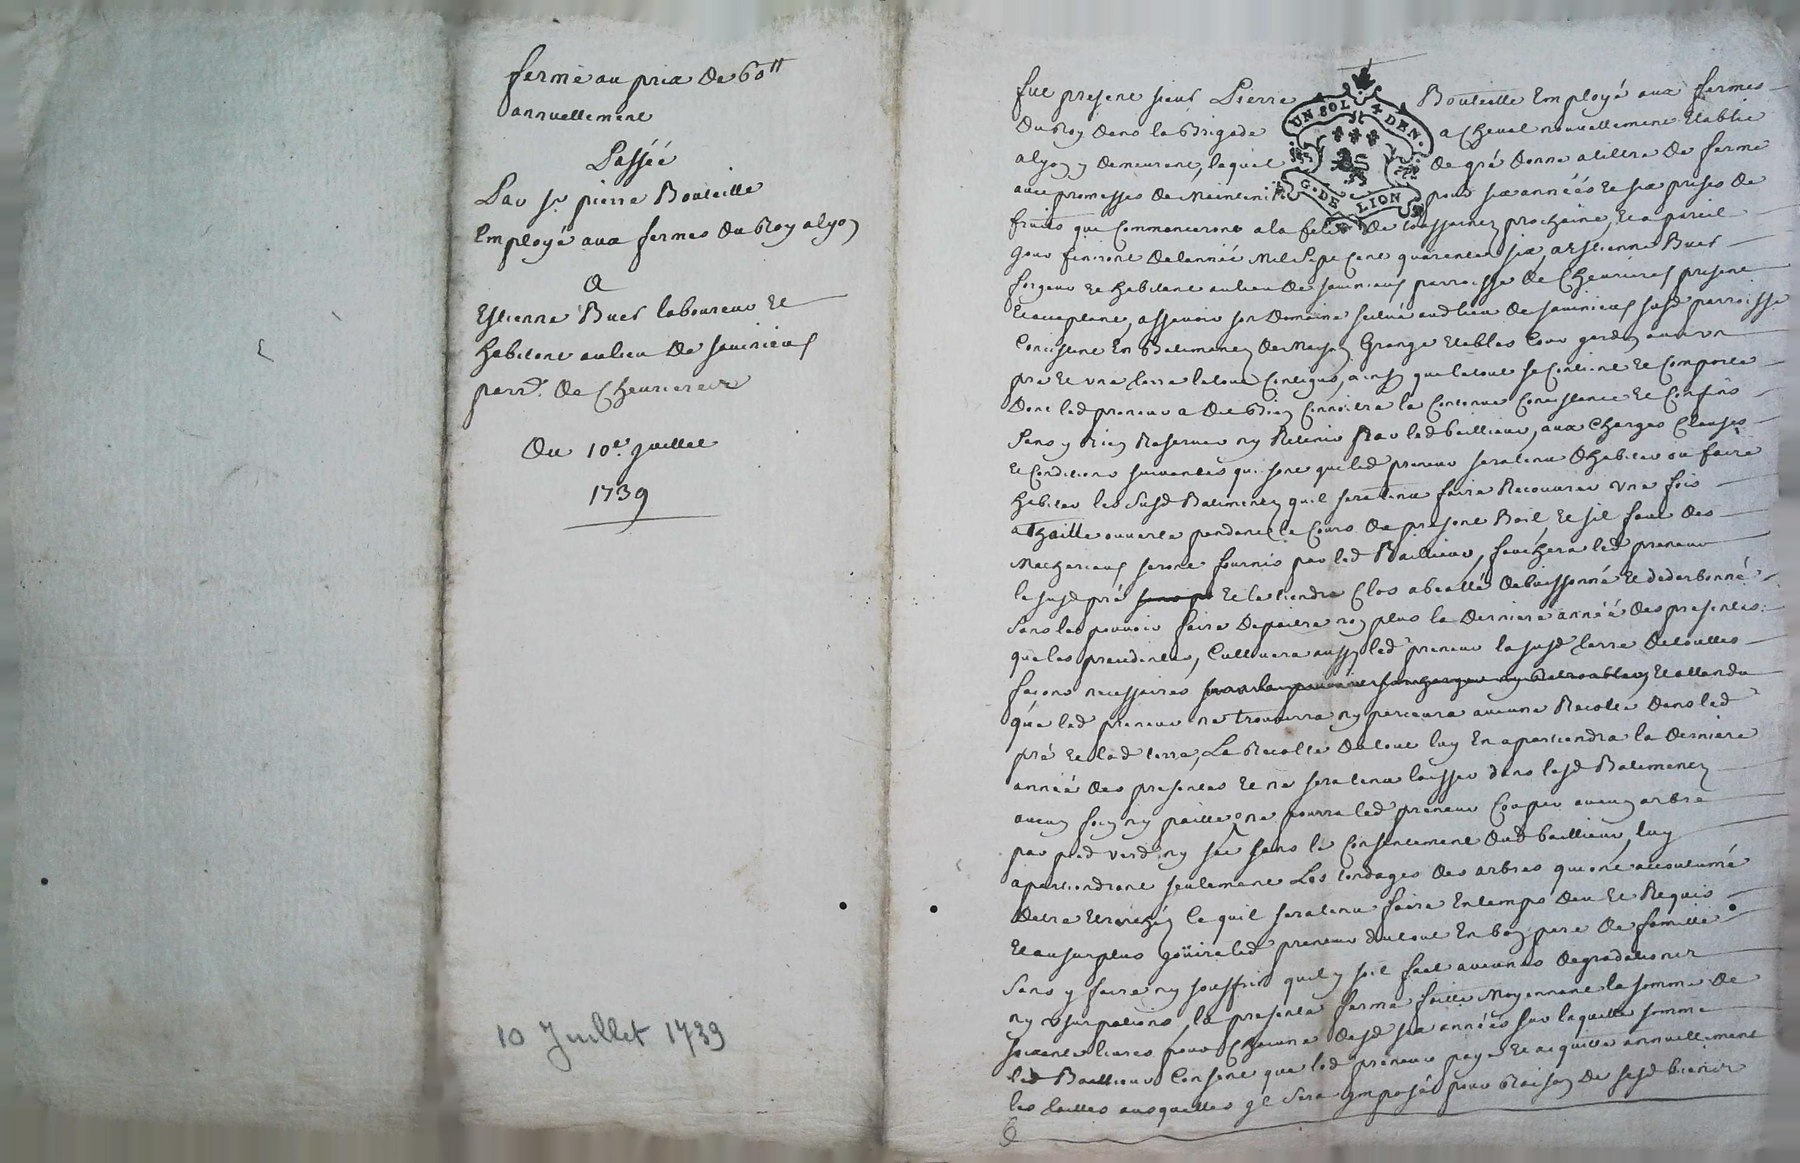 ferme au prix de 60tt
annuellement
Passée
Par sr pierre Bouteille
Employé aux fermes du Roy alyon
A
Estienne Buer laboureur et
habitant au lieu de
parr.e de Cheurieres
Du 10e. juillet
1739
10 Juillet 1739
UN SOL 4 DEN.
G. DE LION
fut present sieur Pierre Bouteille Employé aux fermes
du Roy dans la Brigade a Cheval nouvellement Etablie
alyon y demeurant, lequel de gré donne a tiltre de ferme
avec promesses de Maintenir pour six années et six prises de
fruits que Commenceront a la feste de toussaincts prochaine, et a pareil
jour finiront de lannée Mil Sept Cent quarente six, a Estienne Buer
et habitant au lieu de parroisse de Cheurieres present
et acceptant, assavoir son Domaine scitué aud lieu de susd parroisse
Consistant En Batiments de Maison Grange Etables Cour jardin avec un
pré et une terre le tout Contigus, ainsy que le tout se Contient et Comporte
dont led preneur a dit bien Connoitre la Contenue Consistance et Confins
Sans y Rien Reserver ny Retenir Par led bailleur, aux Charges Clauses
et Conditions suivantes qui sont que led preneur sera tenu dhabiter ou faire
habiter les susd Batiments quil sera tenu faire Recouvrir une fois
a Thaille ouverte pendant le Cours du present Bail, et sil faut des
Materiaux seront fournis par led Bailleur, fauchera led preneur
le susd pré et le tiendra Clos
Sans les pouvoir faire Depaitre non plus la derniere année des presentes
que les precedentes, Cultivera aussy led preneur la susd terre de touttes
façons necessaires Et attendu
que led preneur ne trouverra ny percevra aucune Recolte dans led
pré et lad terre, La Recolte du tout luy En apartiendra la derniere
année des presentes et ne sera tenu laisser dans lesd Batiments
aucun foin ny paille ne pourra led preneur Couper aucun arbre
par pied verd ny sec sans le Consentement dud bailleur, luy
apartiendront seulement Les tondages des arbres qui ont accoutumé
detre Etronchés Ce quil sera tenu faire En temps deu et Requis
Et au surplus joüira led preneur du tout En bon pere de famille
Sans y faire ny souffrir quil y soit fait aucunes degradations
ny usurpations, la presente ferme faitte Moyennant la somme de
soixante livres pour Chacune desd six années sur laquelle somme
led Bailleur Consent que led preneur paye et acquitte annuellement
les tailles ausquelles il sera imposé pour Raison de susd biens